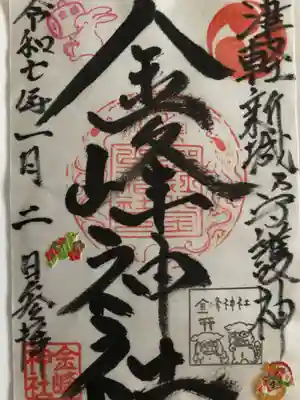 津軽新城乃守護神
金峰神社
令和七年一月二日参拝
金峰神社
金峰神社